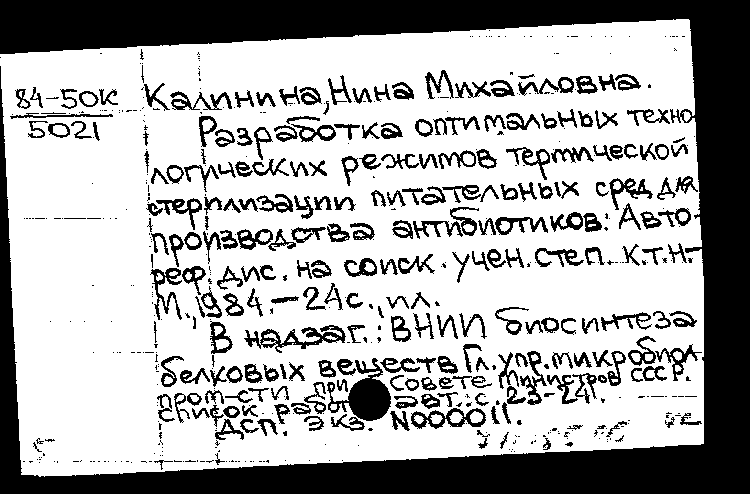 84-50К
5021
Калинина, Нина Михайловна.
Разработка оптимальных техно-
логических режимов термической
стерилизации питательных сред для
производства антибиотиков: Авто-
реф. дис. на соиск. учен. степ. к.т.н.-
М., 1984.-24с., ил.
В надзаг.: ВНИИ биосинтеза
белковых веществ Гл. упр. микробиол.
пром-сти при Совете Министров СССР.
Список работ авт.: с. 23-24.
ДСП. Экз. N000011.